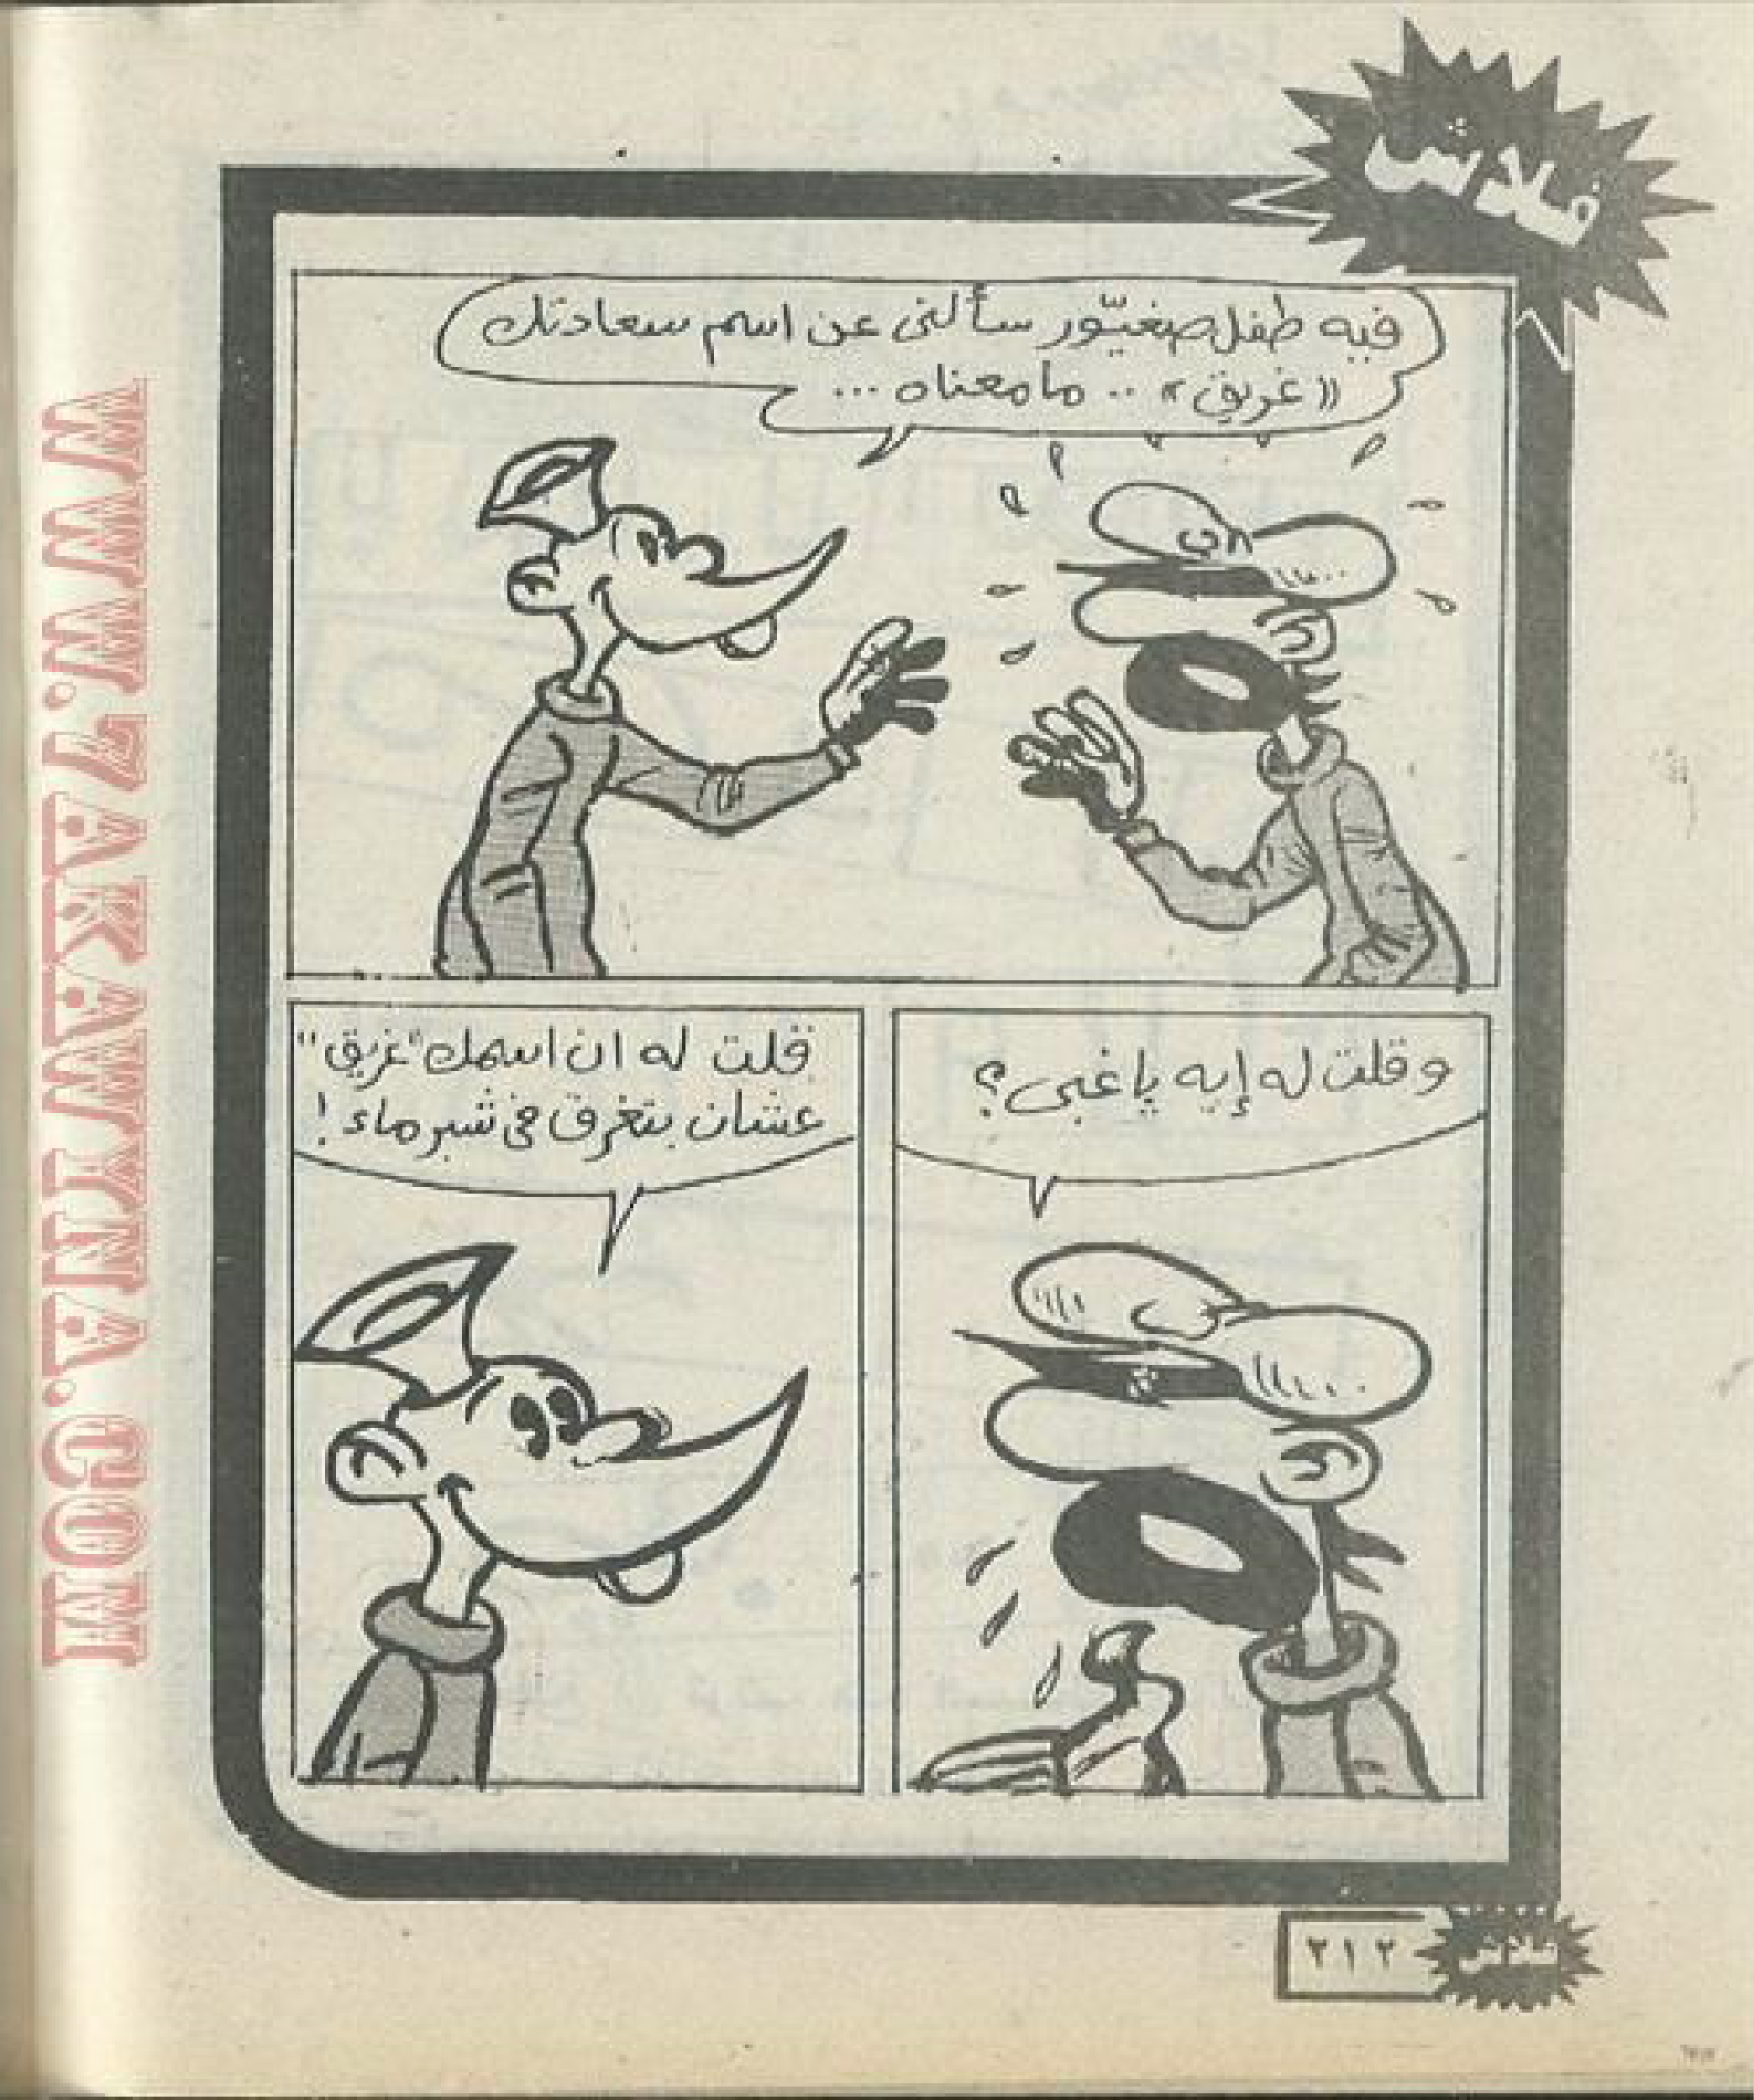 فلاش
فيه طفل صغيّور سألنى عن اسم سعادتك
«غريق» .. ما معناه ...
وقلت له إيه يا غبى؟
قلت له ان اسمك "غريق"
عشان بتغرق فى شبر ماء!
فلاش
٢١٢
WWW.7AKAWITNA.COM